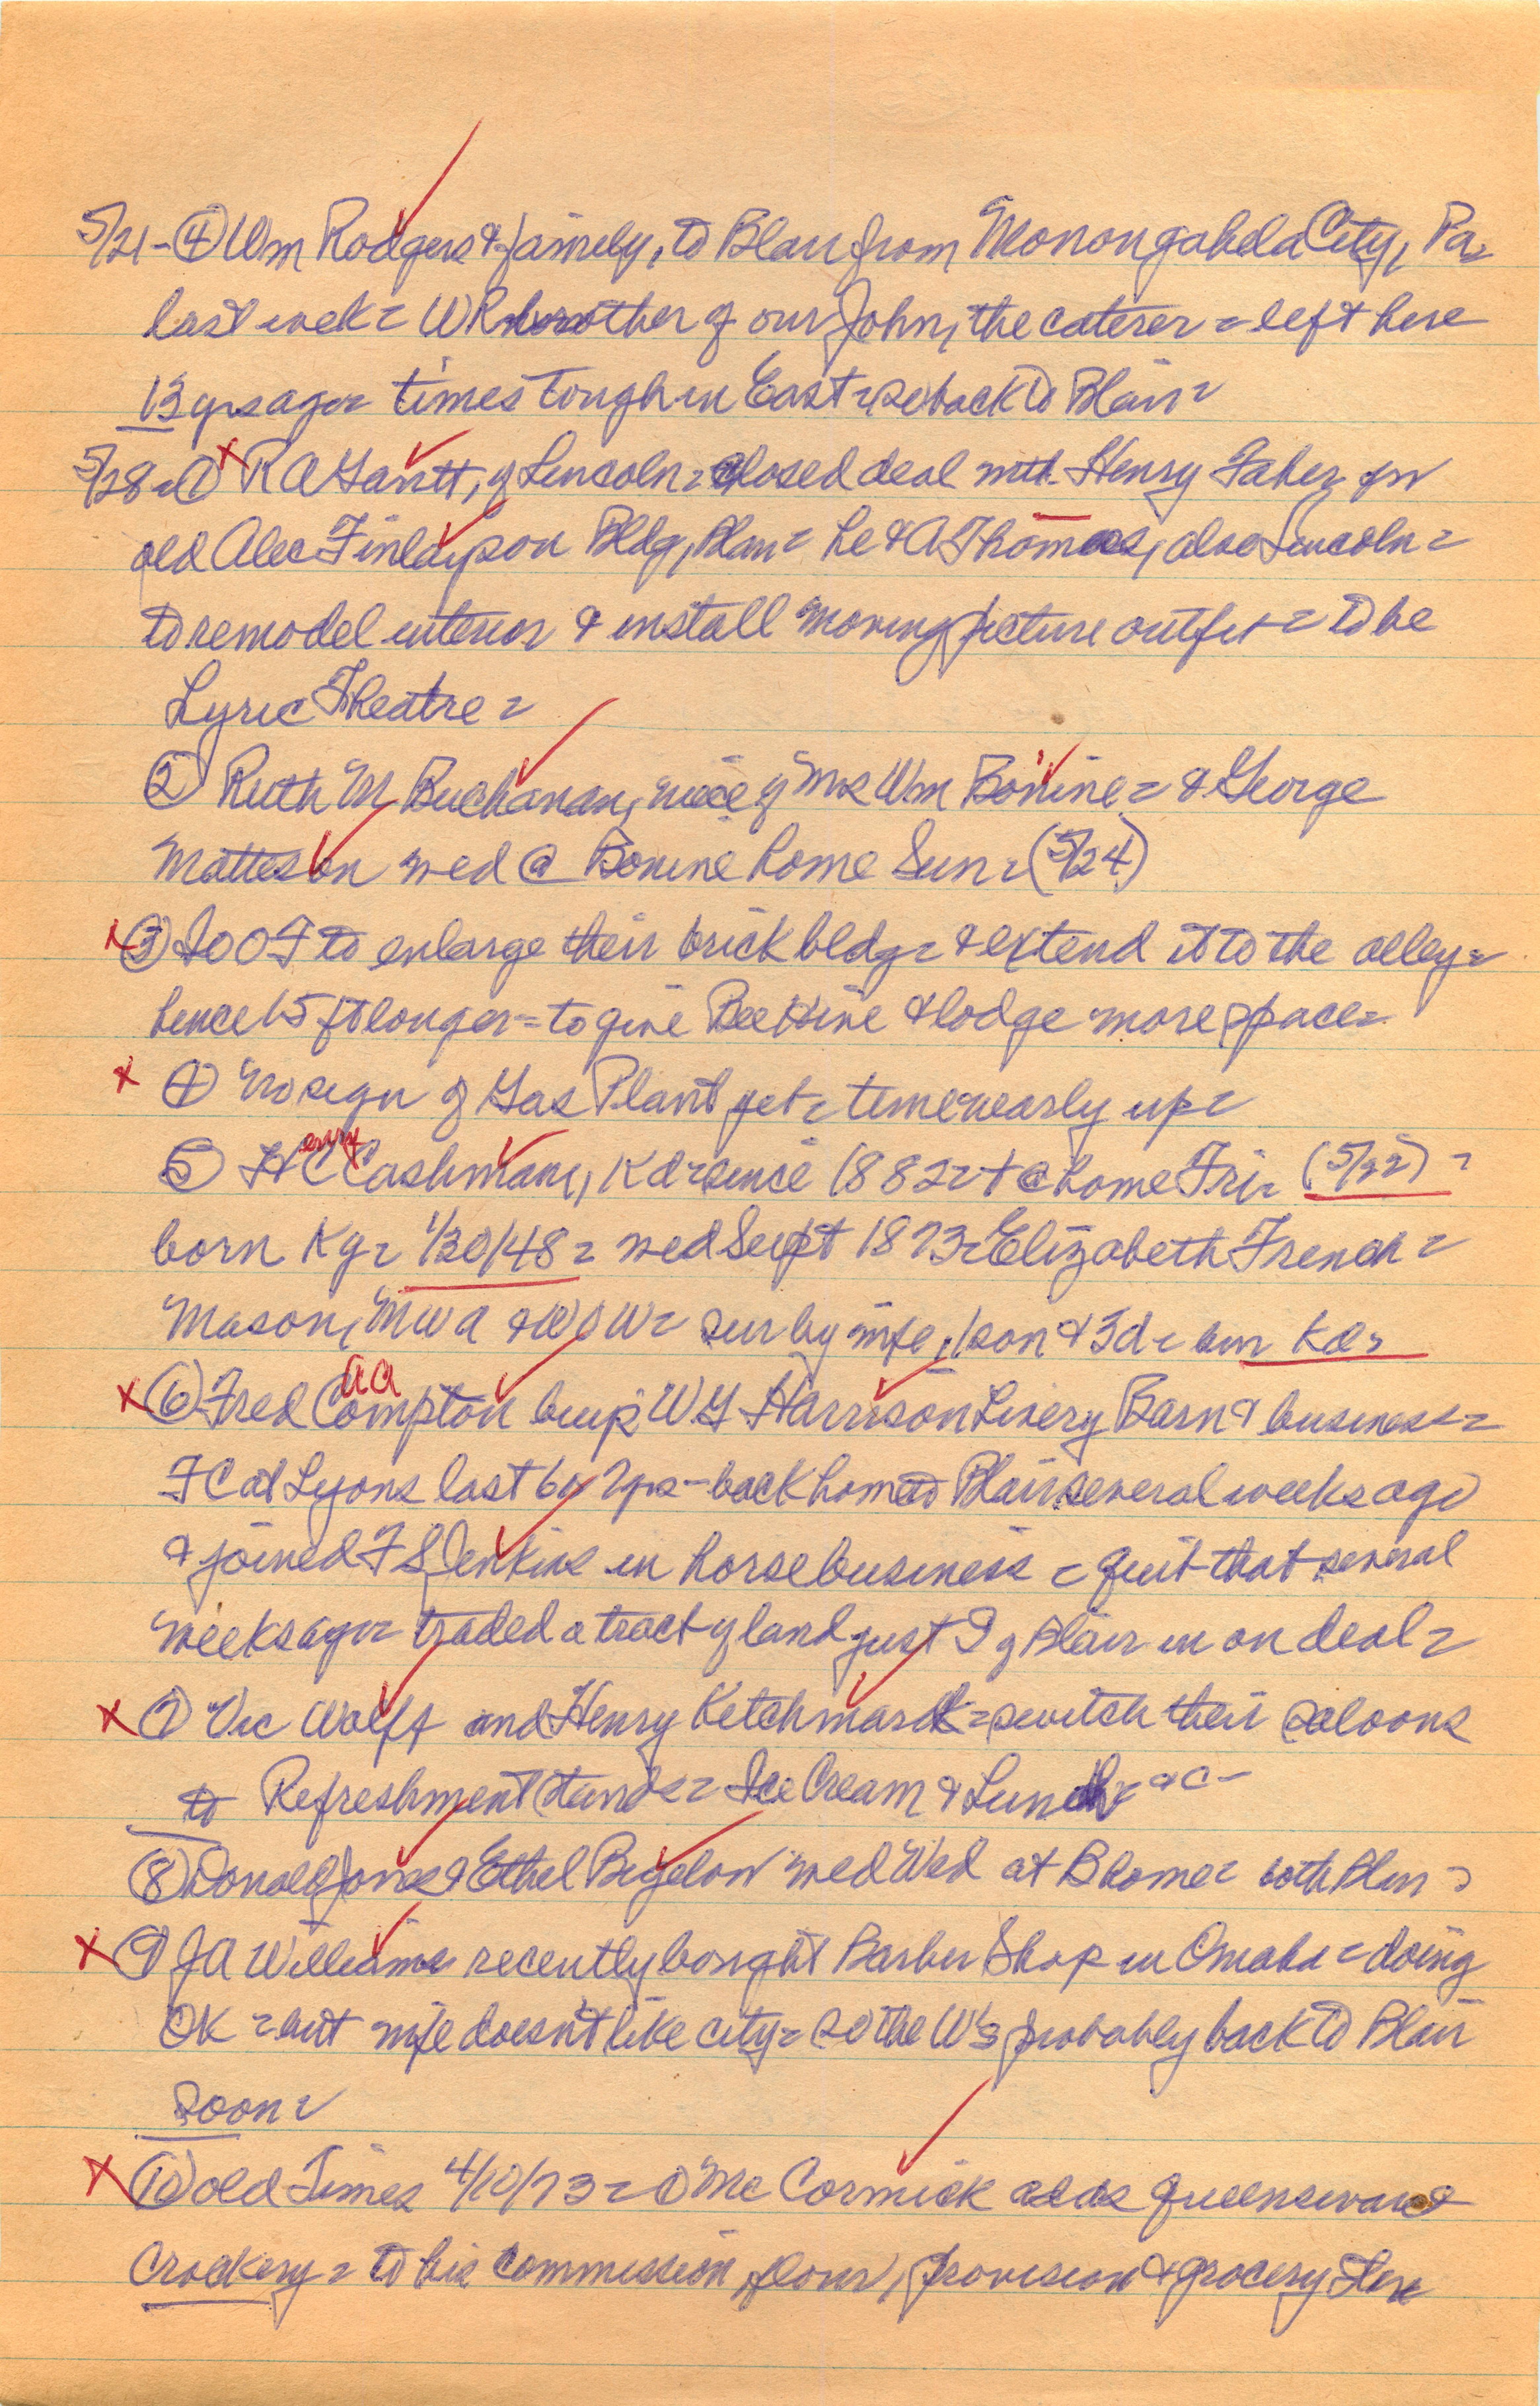 5/21 - ④ Wm Rodgers & family, to Blair from Monongahela City, Pa =
last week = WR brother of our John, the caterer = left here
13 yrs ago = times tough in East = so back to Blair =
5/28 = ① R A Gantt, of Lincoln = closed deal with Henry Faber for
old Alec Finlayson Bldg, Blair = he & A Thomas, also Lincoln =
to remodel interior & install moving picture outfit = to be
Lyric Theatre =
② Ruth M Buchanan, niece of Mrs Wm Bonine = & George
Matteson wed @ Bonine home Sun = (5/24)
③ IOOF to enlarge their brick bldg = & extend it to the alley =
hence 15 ft longer = to give Bee Hive & lodge more space =
④ No sign of Gas Plant yet = time nearly up =
⑤ H C enry Cashman, Kd = since 1882 = + @ home Fri = (5/22) =
born Ky = 1/30/48 = wed Sept 1873 = Elizabeth French =
Mason, MWA & WOW = sur by wife, 1 son & 3 d = bur Kd =
⑥ Fred Compton aa buys W G Harrison Livery Barn & business =
FC at Lyons last 6 or 7 yrs - back home to Blair several weeks ago
& joined F S Jenkins in horse business = quit that several
weeks ago = traded a tract of land just S of Blair in on deal =
⑦ Vic Wolff and Henry Ketchmark = switch their saloons
to Refreshment Stands = Ice Cream & Lunch = &c -
⑧ Donald Jones & Ethel Bigelow wed Wed at B home = both Blair =
⑨ JA Williams recently bought Barber Shop in Omaha = doing
OK = but wife doesn't like city = so the W's probably back to Blair
soon =
⑩ old Times 4/10/73 = O McCormick adds queensware &
crockery = to his commission, flour, provision & grocery store